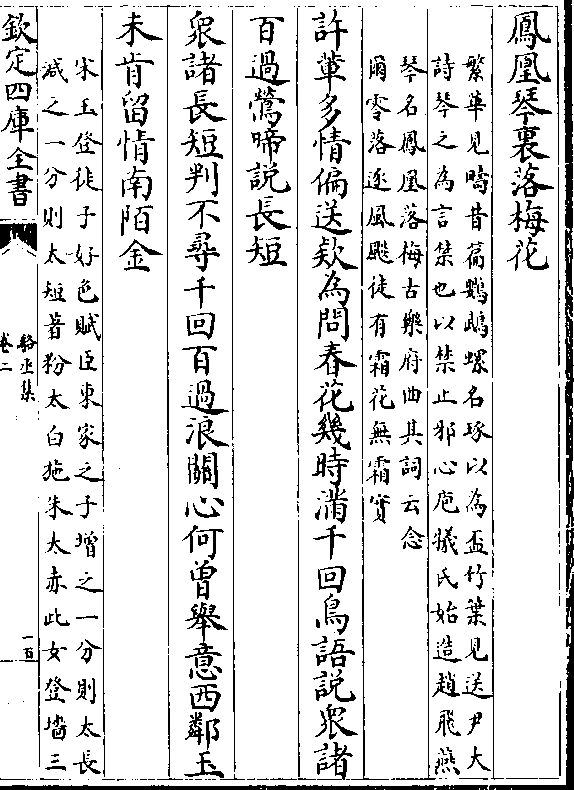 鳳凰琴裏落梅花
繁華見疇昔篇鸚鵡螺名琢以為盃竹葉見送尹大
詩琴之為言禁也以禁止邪心庖犧氏始造趙飛燕
琴名鳳凰落梅古樂府曲其詞云念
爾零落逐風飈徒有霜花無霜實
許輩多情偏送欵為問春花幾時滿千回鳥語說衆諸
百過鶯啼說長短
衆諸長短判不尋千回百過浪關心何曾舉意西鄰玉
未肯留情南陌金
宋玉登徒子好色賦臣東家之子增之一分則太長
减之一分則太短著粉太白施朱太赤此女登墻三
欽定四庫全書
駱丞集
卷二
一百